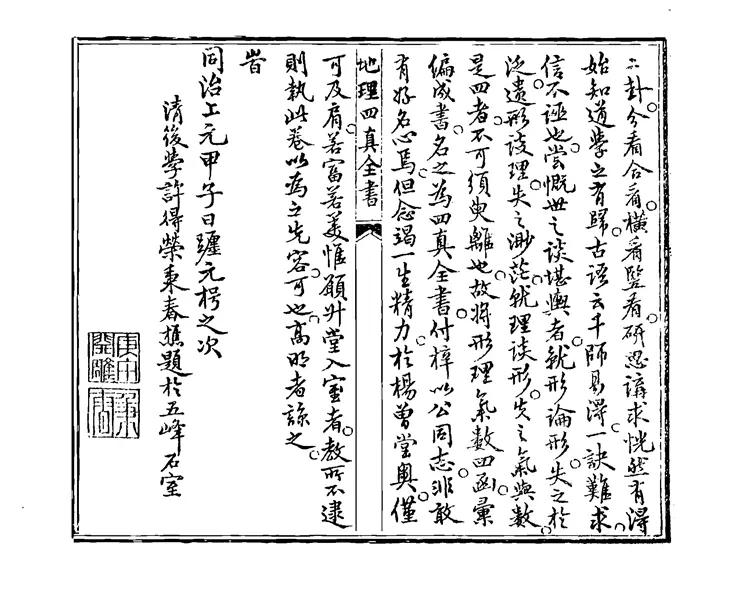 二卦分看合看橫看豎看研思講求恍然有得
始知道學之有歸古語云千師易得一訣難求
信不誣也嘗慨世之談堪輿者就形論形失之於
泛遺形談理失之渺茫就理談形失之氣與數
是四者不可須臾離也故將形理氣數四函彙
編成書名之為四真全書付梓以公同志非敢
有好名心焉但念竭一生精力於楊曾堂奧僅
地理四真全書
可及肩若富若美惟願升堂入室者教所不逮
則執此卷以為之先容可也高明者諒之
旹
同治上元甲子日躔元枵之次
清後學許得榮東春樵題於五峰石室